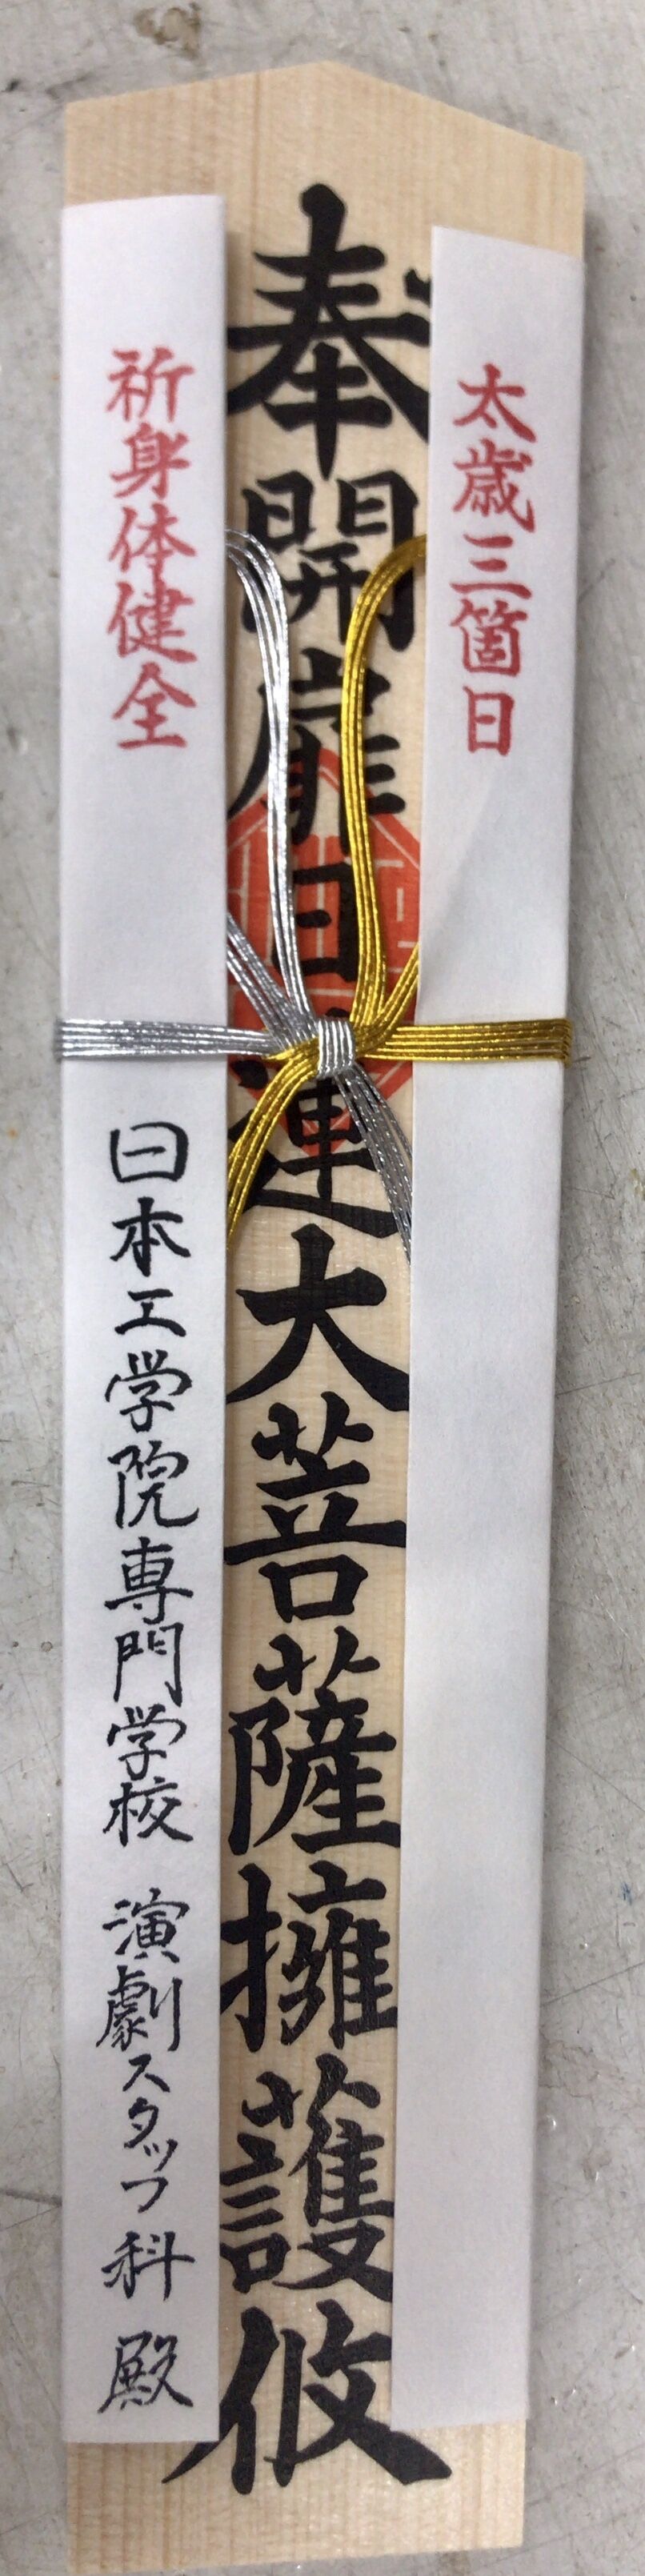 太歳三箇日
奉開扉日蓮大菩薩擁護攸
祈身体健全
日本工学院専門学校 演劇スタッフ科 殿